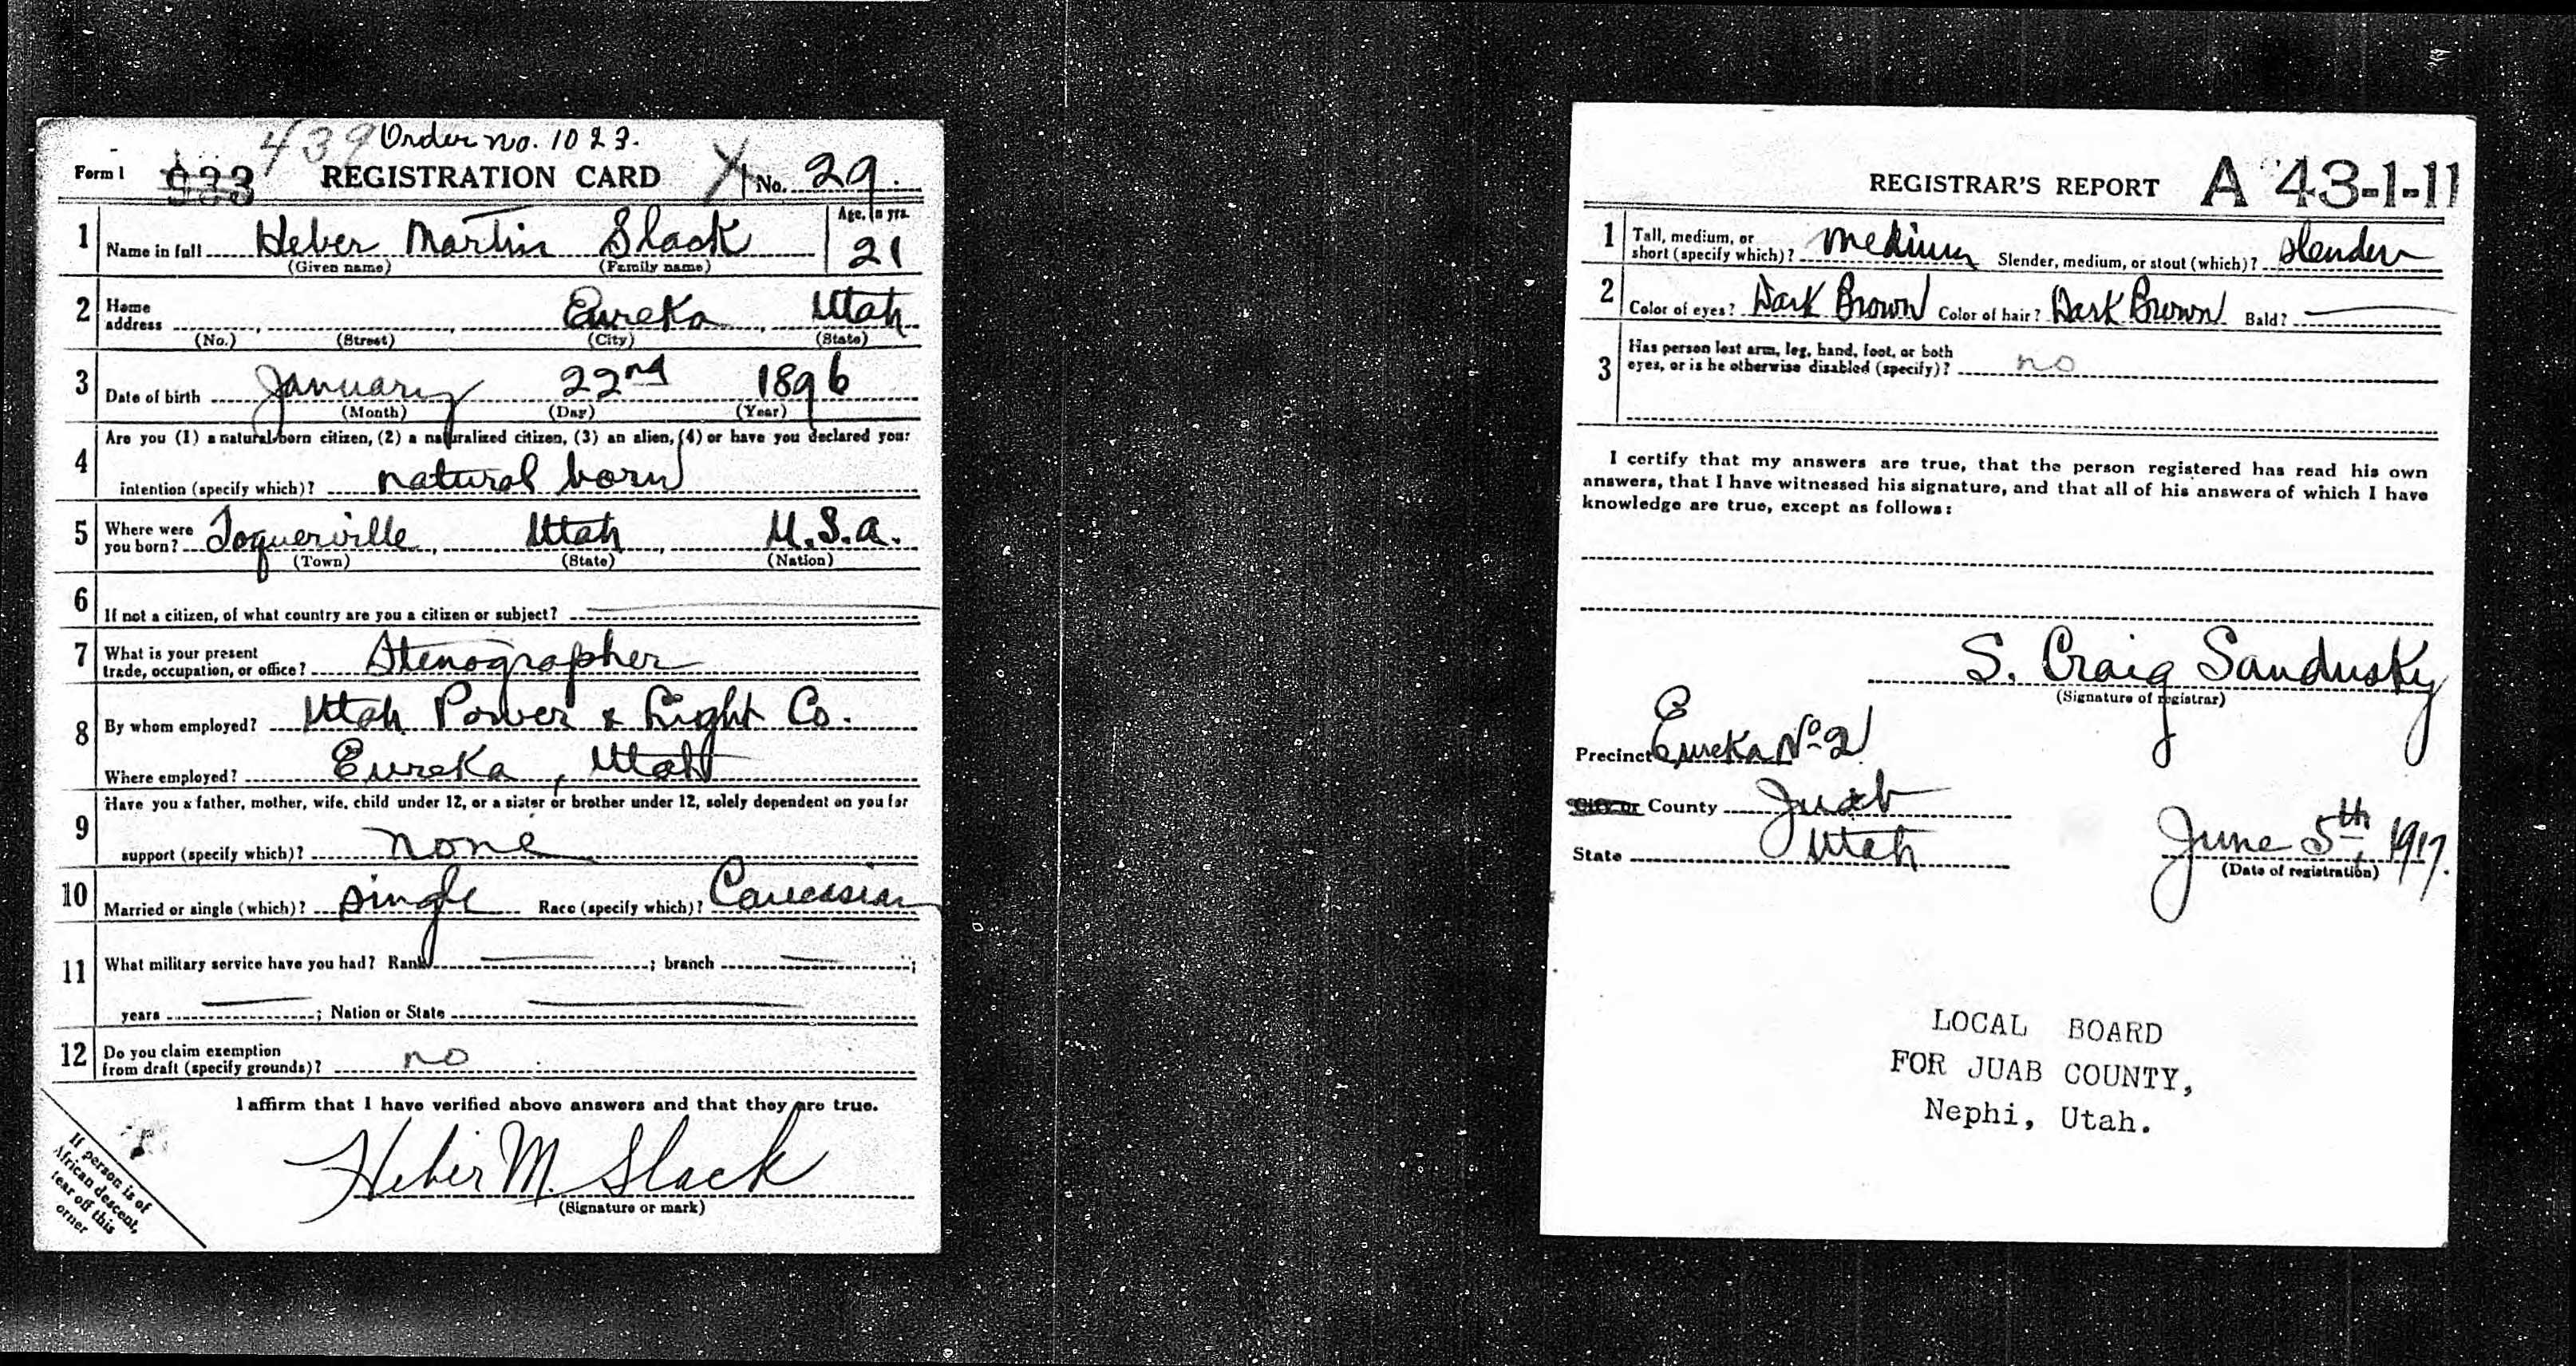 439 Order no. 1023.
Form 1 933 REGISTRATION CARD No. 29.
1 Name in full Heber Martin Slack Age, in yrs. 21
(Given name) (Family name)
2 Home address Eureka Utah
(No.) (Street) (City) (State)
3 Date of birth January 22nd 1896
(Month) (Day) (Year)
4 Are you (1) a natural-born citizen, (2) a naturalized citizen, (3) an alien, (4) or have you declared your
intention (specify which)? natural born
5 Where were you born? Toquerville, Utah, U.S.A.
(Town) (State) (Nation)
6 If not a citizen, of what country are you a citizen or subject?
7 What is your present trade, occupation, or office? Stenographer
8 By whom employed? Utah Power & Light Co.
Where employed? Eureka, Utah
9 Have you a father, mother, wife, child under 12, or a sister or brother under 12, solely dependent on you for
support (specify which)? none
10 Married or single (which)? single Race (specify which)? Caucasian
11 What military service have you had? Rank ; branch ;
years ; Nation or State
12 Do you claim exemption from draft (specify grounds)? no
I affirm that I have verified above answers and that they are true.
Heber M. Slack
(Signature or mark)
If person is of
African descent,
tear off this
orner
REGISTRAR'S REPORT A 43-1-11
1 Tall, medium, or short (specify which)? medium Slender, medium, or stout (which)? slender
2 Color of eyes? Dark Brown Color of hair? Dark Brown Bald?
3 Has person lost arm, leg, hand, foot, or both
eyes, or is he otherwise disabled (specify)? no
I certify that my answers are true, that the person registered has read his own
answers, that I have witnessed his signature, and that all of his answers of which I have
knowledge are true, except as follows:
S. Craig Sandusky
(Signature of registrar)
Precinct Eureka No 2
City or County Juab
State Utah
June 5th, 1917.
(Date of registration)
LOCAL BOARD
FOR JUAB COUNTY,
Nephi, Utah.